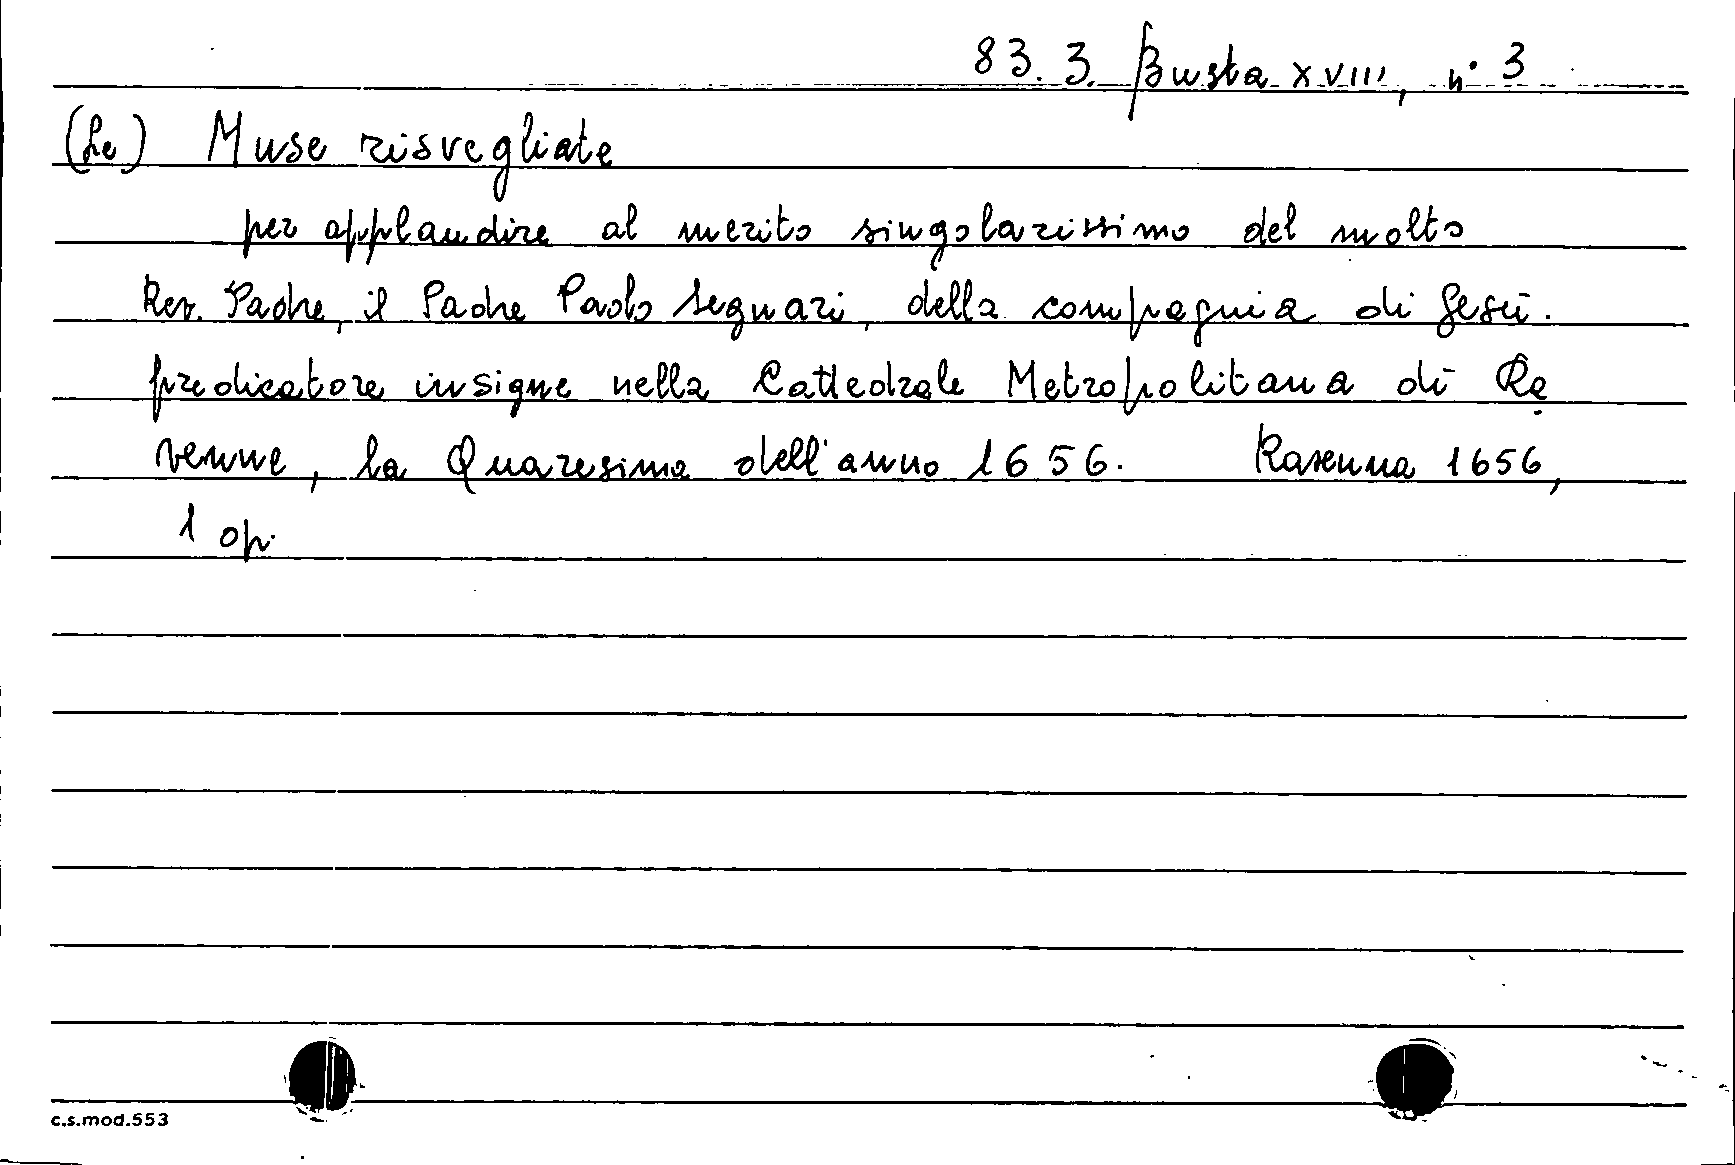 83. 3. Busta XVIII, n° 3
(Le) Muse risvegliate
per applaudire al merito singolarissimo del molto
Rev. Padre, il Padre Paolo Segnari, della compagnia di Gesù.
predicatore insigne nella Cattedrale Metropolitana di Ra
venna, la Quaresima dell'anno 1656. Ravenna 1656,
1 op.
c.s.mod.553